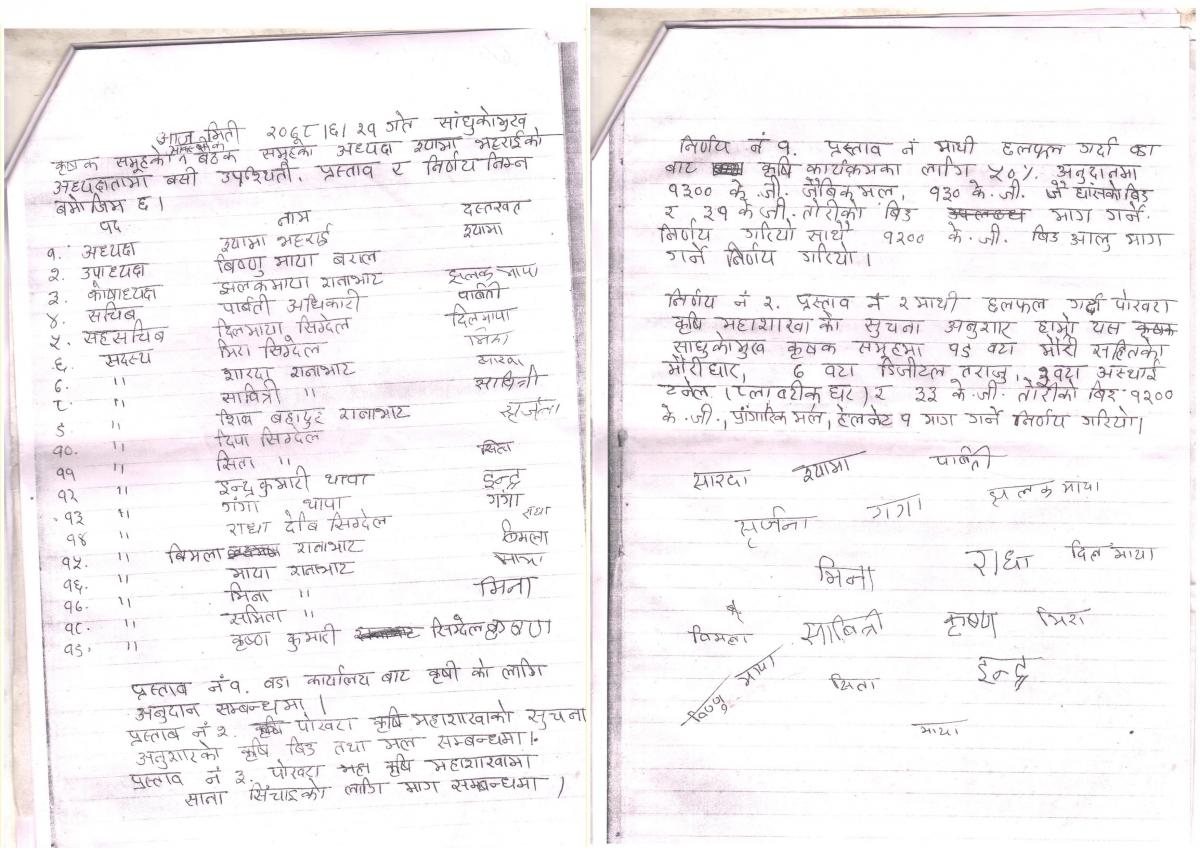 आज मिती २०७८।६।२१ गते सांधुकोमुख
कृषक समूहको १ बैठक समूहका अध्यक्ष श्यामा भट्टराईको
अध्यक्षतामा बसी उपस्थिती, प्रस्ताव र निर्णय निम्न
बमोजिम छ।
पद नाम दस्तखत
१. अध्यक्ष श्यामा भट्टराई श्यामा
२. उपाध्यक्ष बिष्णु माया बराल
३. कोषाध्यक्ष झलकमाया रानाभाट झलक माया
४. सचिब पार्बती अधिकारी पार्बती
५. सहसचिब दिलमाया सिग्देल दिलमाया
६. सदस्य मिरा सिग्देल मिरा
७. " शारदा रानाभाट सारदा
८. " सावित्री " साबित्री
९. " शिव बहादुर रानाभाट सृर्जना
१०. " दिपा सिग्देल
११ " सिता " सिता
१२ " इन्द्रकुमारी थापा इन्द्र
१३ " गंगा थापा गंगा
१४ " राधा देबि सिग्देल राधा
१५. " बिमला रानाभाट बिमला
१६. " माया रानाभाट माया
१७. " मिना " मिना
१८. " समिता "
१९. " कृष्ण कुमारी सिग्देल कृष्ण
प्रस्ताब नं १. वडा कार्यालय बाट कृषी को लागि
अनुदान सम्बन्धमा।
प्रस्ताब नं २. पोखरा कृषि महाशाखाको सुचना
अनुशारको कृषि बिउ तथा मल सम्बन्धमा।
प्रस्ताव नं ३. पोखरा कृषि महाशाखामा
साना सिंचाइको लागि माग सम्बन्धमा)
निर्णय नं १. प्रस्ताव नं माथी छलफल गर्दा का
बाट कृषि कार्यक्रमका लागि ५०% अनुदानमा
१३०० के.जी. जैबिक मल, १३० के.जी. जै घाँसको बिउ
र ३१ के.जी. तोरीको बिउ उपलब्ध माग गर्ने
निर्णय गरियो साथै १२०० के.जी. बिउ आलु माग
गर्ने निर्णय गरियो।
निर्णय नं २. प्रस्ताव नं २ माथी छलफल गर्दा पोखरा
कृषि महाशाखा को सुचना अनुशार हाम्रो यस कृषक
साधुकोमुख कृषक समूहमा १९ वटा मौरी सहितको
मौरीघार, ७ वटा डिजीटल तराजु, ३ वटा अस्थाई
टनेल (प्लास्टीक घर) र ३३ के.जी. तोरीको बिउ १२००
के.जी., प्रांगारिक मल, हेलनेट १ माग गर्ने निर्णय गरियो।
सारदा श्यामा पार्बती
सृर्जना गंगा झलक माया
मिना राधा दिल माया
विमला साबित्री कृष्ण मिरा
विष्णु माया सिता इन्द्र
माया